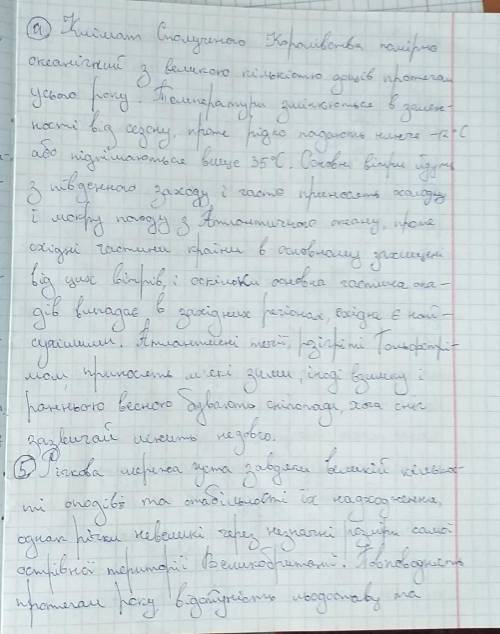 а) Клімат Сполученого Королівства помірно
океанічний з великою кількістю дощів протягом
усього року. Температури змінюються в залеж-
ності від сезону, проте рідко падають нижче -12°С
або піднімаються вище 35°С. Основні вітри йдуть
з південного заходу і часто приносять холодну
і мокру погоду з Атлантичного океану, проте
східні частини країни в основному захищені
від цих вітрів, і оскільки основна частина опа-
дів випадає в західних регіонах, східні є най-
сушішими. Атлантичні течії, розігріті Гольфстрі-
мом, приносять м'які зими, іноді взимку і
ранньою весною бувають снігопади, хоча сніг
зазвичай лежить недовго.
б) Річкова мережа густа завдяки великій кілько-
ті опадів та стабільності їх надходження,
однак річки невеликі через незначні розміри самої
острівної території Великобританії. Повноводність
протягом року відсутність льодоставу та